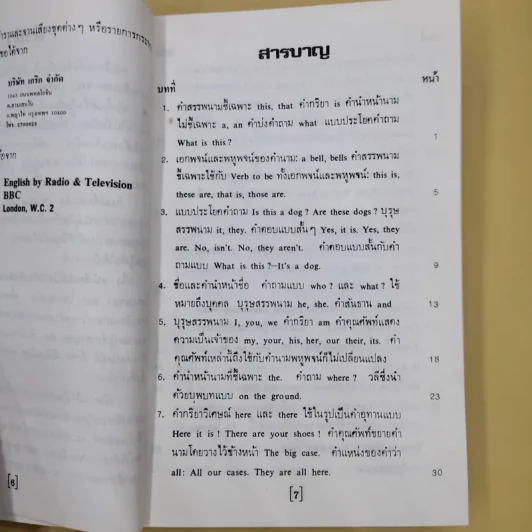 ตำราและจานเสียงชุดต่างๆ หรือรายการกระจาย
ขอได้จาก
บริษัท เกริก จำกัด
English by Radio & Television
BBC
London, W.C. 2
[6]
สารบาญ
บทที่ หน้า
1. คำสรรพนามชี้เฉพาะ this, that คำกริยา is คำนำหน้านาม
ไม่ชี้เฉพาะ a, an คำบ่งคำถาม what แบบประโยคคำถาม
What is this? 1
2. เอกพจน์และพหูพจน์ของคำนาม: a bell, bells คำสรรพนาม
ชี้เฉพาะใช้กับ Verb to be ทั้งเอกพจน์และพหูพจน์: this is,
these are, that is, those are. 5
3. แบบประโยคคำถาม Is this a dog? Are these dogs? บุรุษ
สรรพนาม it, they. คำตอบแบบสั้นๆ Yes, it is. Yes, they
are. No, isn't. No, they aren't. คำตอบแบบสั้นกับคำ
ถามแบบ What is this?–It's a dog. 9
4. ชื่อและคำนำหน้าชื่อ คำถามแบบ who? และ what? ใช้
หมายถึงบุคคล บุรุษสรรพนาม he, she. คำสันธาน and 13
5. บุรุษสรรพนาม I, you, we คำกริยา am คำคุณศัพท์แสดง
ความเป็นเจ้าของ my, your, his, her, our their, its. คำ
คุณศัพท์เหล่านี้ถึงใช้กับคำนามพหูพจน์ก็ไม่เปลี่ยนแปลง 18
6. คำนำหน้านามที่ชี้เฉพาะ the. คำถาม where? วลีซึ่งนำ
ด้วยบุพบทแบบ on the ground. 23
7. คำกริยาวิเศษณ์ here และ there ใช้ในรูปเป็นคำอุทานแบบ
Here it is! There are your shoes! คำคุณศัพท์ขยายคำ
นามโดยวางไว้ข้างหน้า The big case. ตำแหน่งของคำว่า
all: All our cases. They are all here. 30
[7]